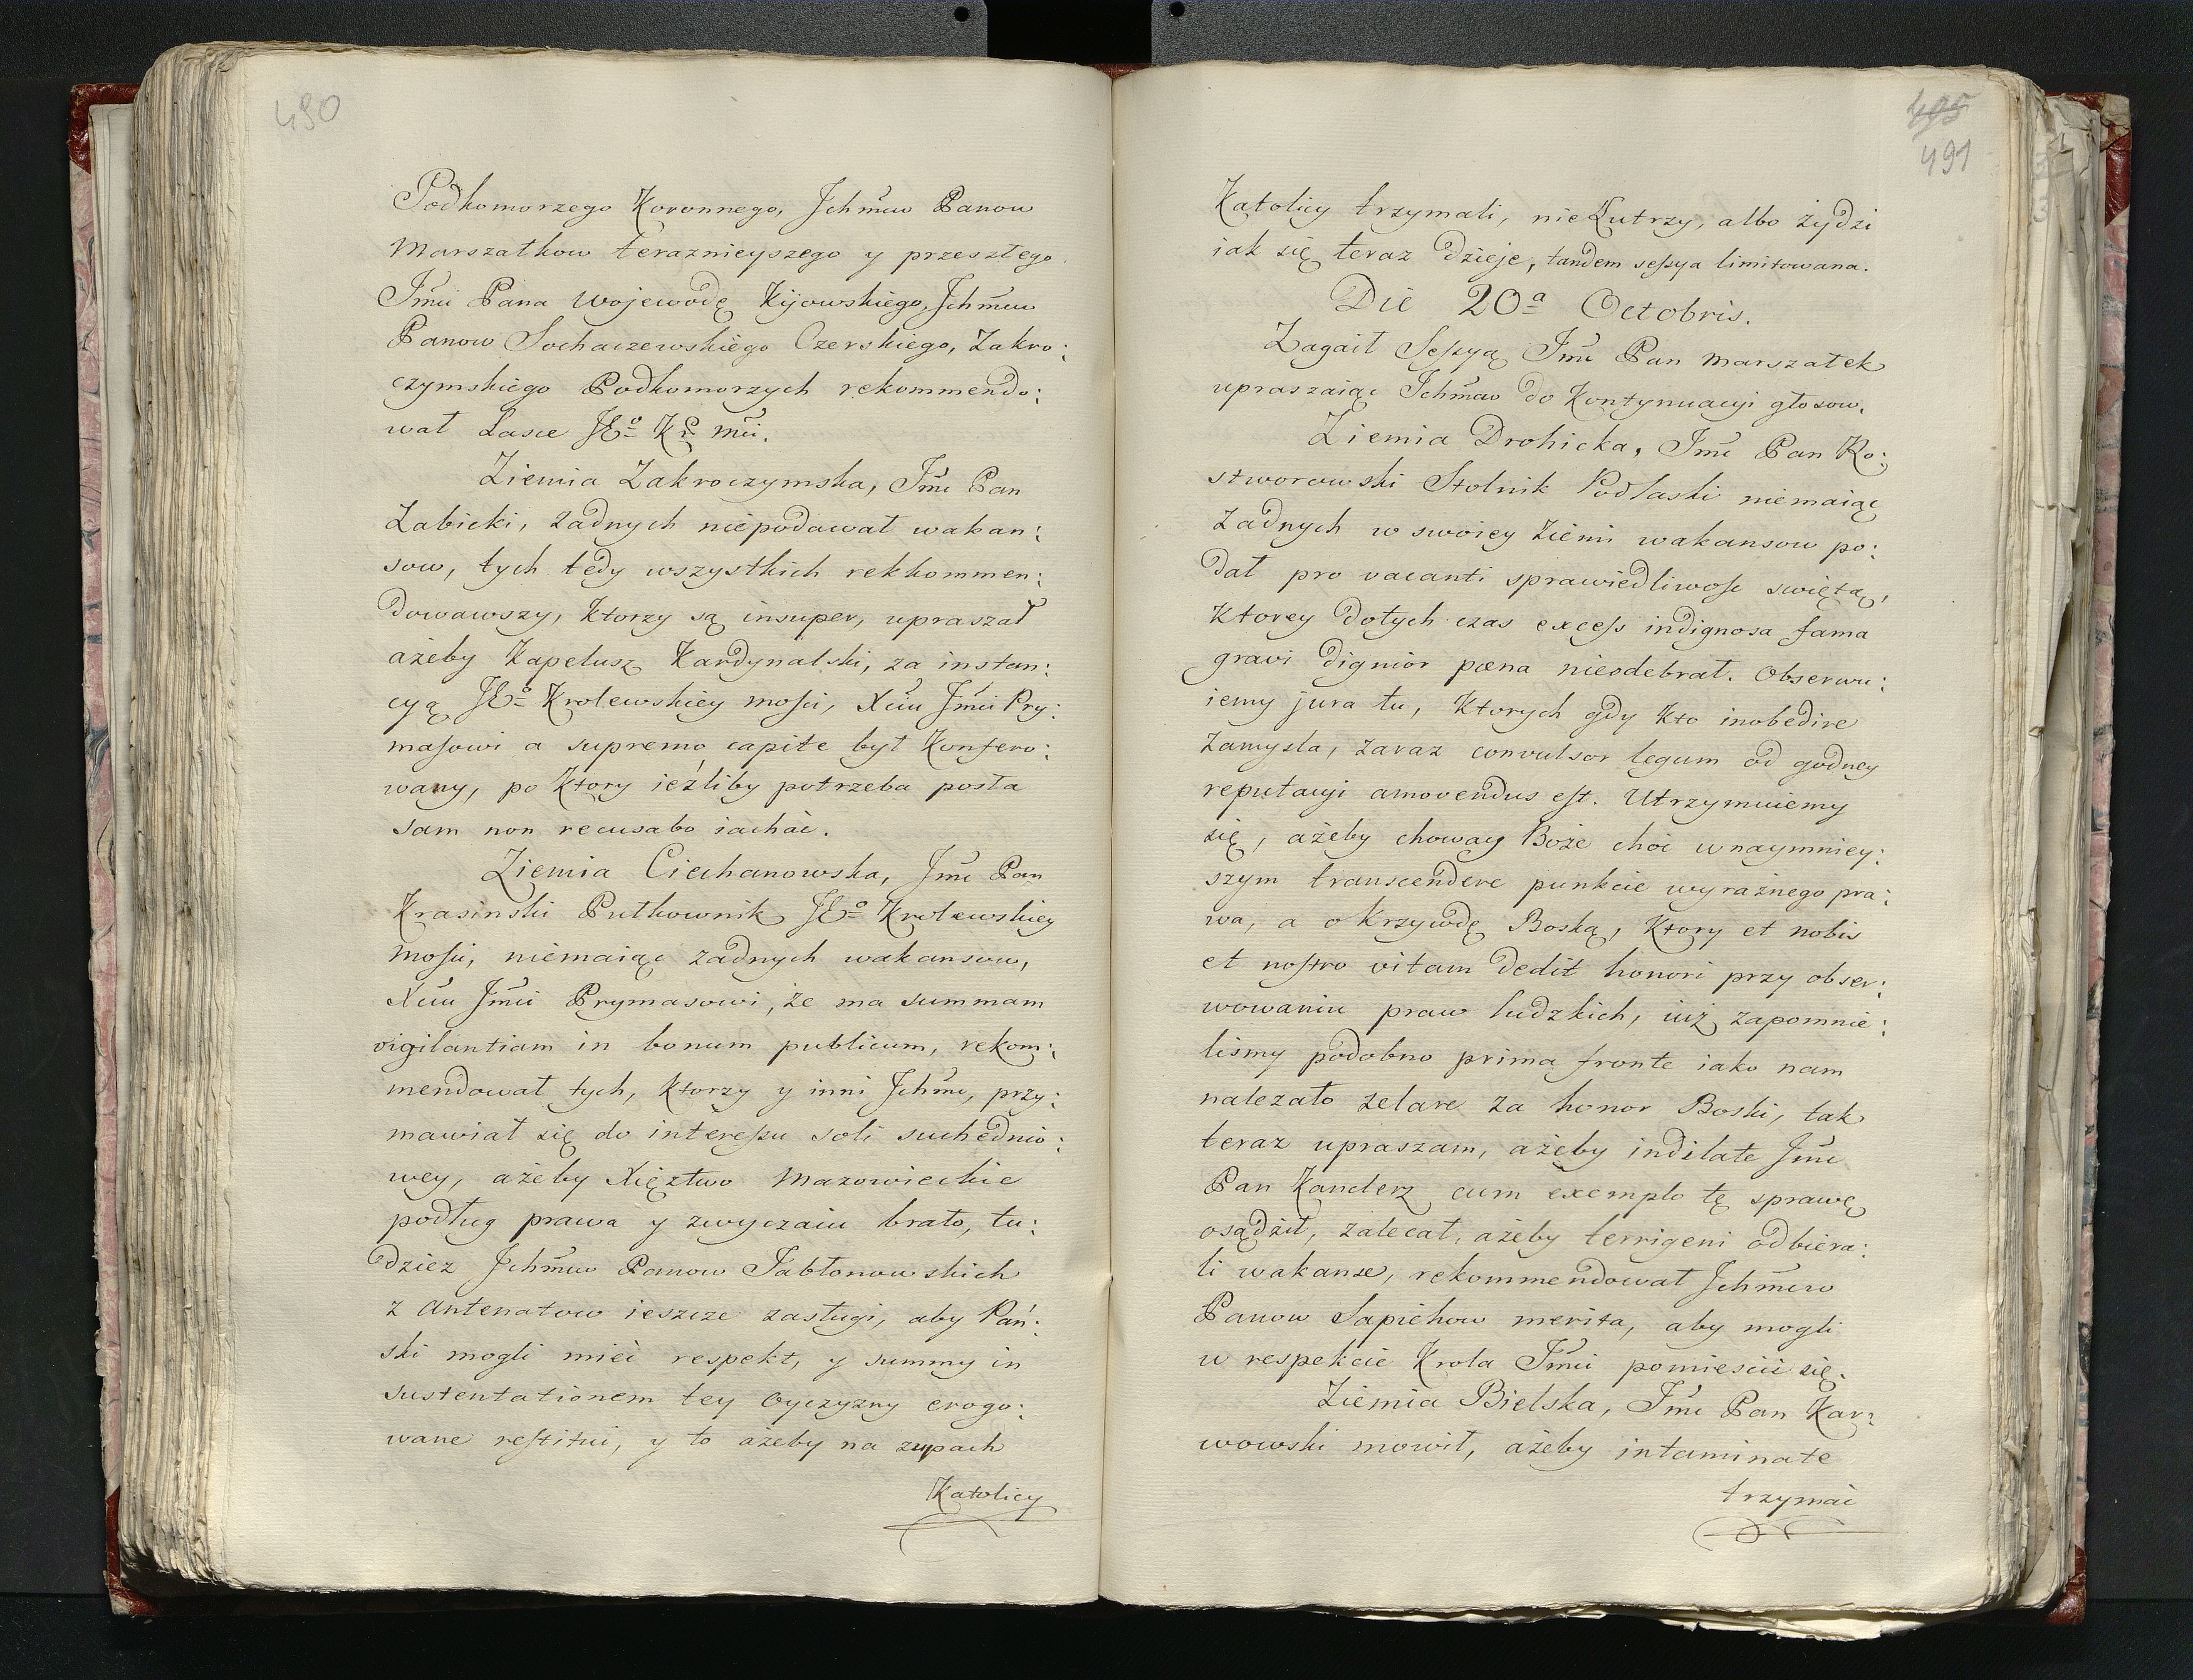 490
Podkomorzego Koronnego, Jchmw Panow
Marszałkow teraznieyszego y przeszłego
Jmći Pana Wojewodę Kijowskiego, Jchmw
Panow Sochaczewskiego Czerskiego, Zakro:
czymskiego Podkomorzych rekommendo:
wał Łasce JEº Kr Mći.
Ziemia Zakroczymska, Jmć Pan
Zabicki, żadnych niepodawał wakan:
sow, tych tedy wszystkich rekkommen:
dowawszy, Ktorzy są insuper, upraszał
ażeby Kapelusz Kardynalski, za instan:
cyą JEº Krolewskiey mosci, Xciu Jmći Pry:
masowi a supremo capite był Konfero:
wany, po Ktory ieźliby potrzeba posła
sam non recusabo iachać.
Ziemia Ciechanowska, Jmć Pan
Krasinski Pułkownik JEº Krolewskiey
Mosci, niemaiąc żadnych wakansow,
Xciu Jmći Prymasowi, że ma summam
vigilantiam in bonum publicum, rekom:
mendował tych, Ktorzy y inni Jchmć, przy:
mawiał się do interessu soli suchednio:
wey, ażeby Xięztwo Mazowieckie
podług prawa y zwyczaiu brało, tu:
dziez Jchmw Panow Jabłonowskich
z Antenatow ieszcze zasługi, aby Pań:
ski mogli mieć respekt, y summy in
sustentationem tey Oyczyzny erogo:
wane restitui, y to ażeby na zupach
Katolicy
495
491
Katolicy trzymali, nie Lutrzy, albo żydzi
iak się teraz dzieje, tandem sessya limitowana.
Die 20ª Octobris.
Zagaił Sessyą Jmć Pan Marszałek
upraszaiąc Jchmw do Kontynuacyi głosow.
Ziemia Drohicka, Jmć Pan Ro:
stworowski Stolnik Podlaski niemaiąc
żadnych w swoiey Ziemi wakansow po:
dał pro vacanti sprawiedliwosc swiętą,
Ktorey dotych czas excess indignosa fama
gravi dignior pœna nieodebrał. Obserwu:
iemy jura tu, Ktorych gdy Kto inobedire
zamysla, zaraz convulsor legum od godney
reputacyi amovendus est. Utrzymuiemy
się, ażeby choway Boże choć w naymniey:
szym transcendere punkcie wyraźnego pra:
wa, a o Krzywdę Boską, Ktory et nobis
et nostro vitam dedit honori przy obser:
wowaniu praw ludzkich, iuż zapomnie:
lismy podobno prima fronte iako nam
nalezało zelare za honor Boski, tak
teraz upraszam, ażeby indilate Jmć
Pan Kanclerz cum exemplo tę sprawę
osądził, zalecał, ażeby terrigeni odbiera:
li wakanse, rekommendował Jchmw
Panow Sapiehow merita, aby mogli
w respekcie Krola Jmći pomiescić się.
Ziemia Bielska, Jmć Pan Kar:
wowski mowił, ażeby intaminate
trzymać